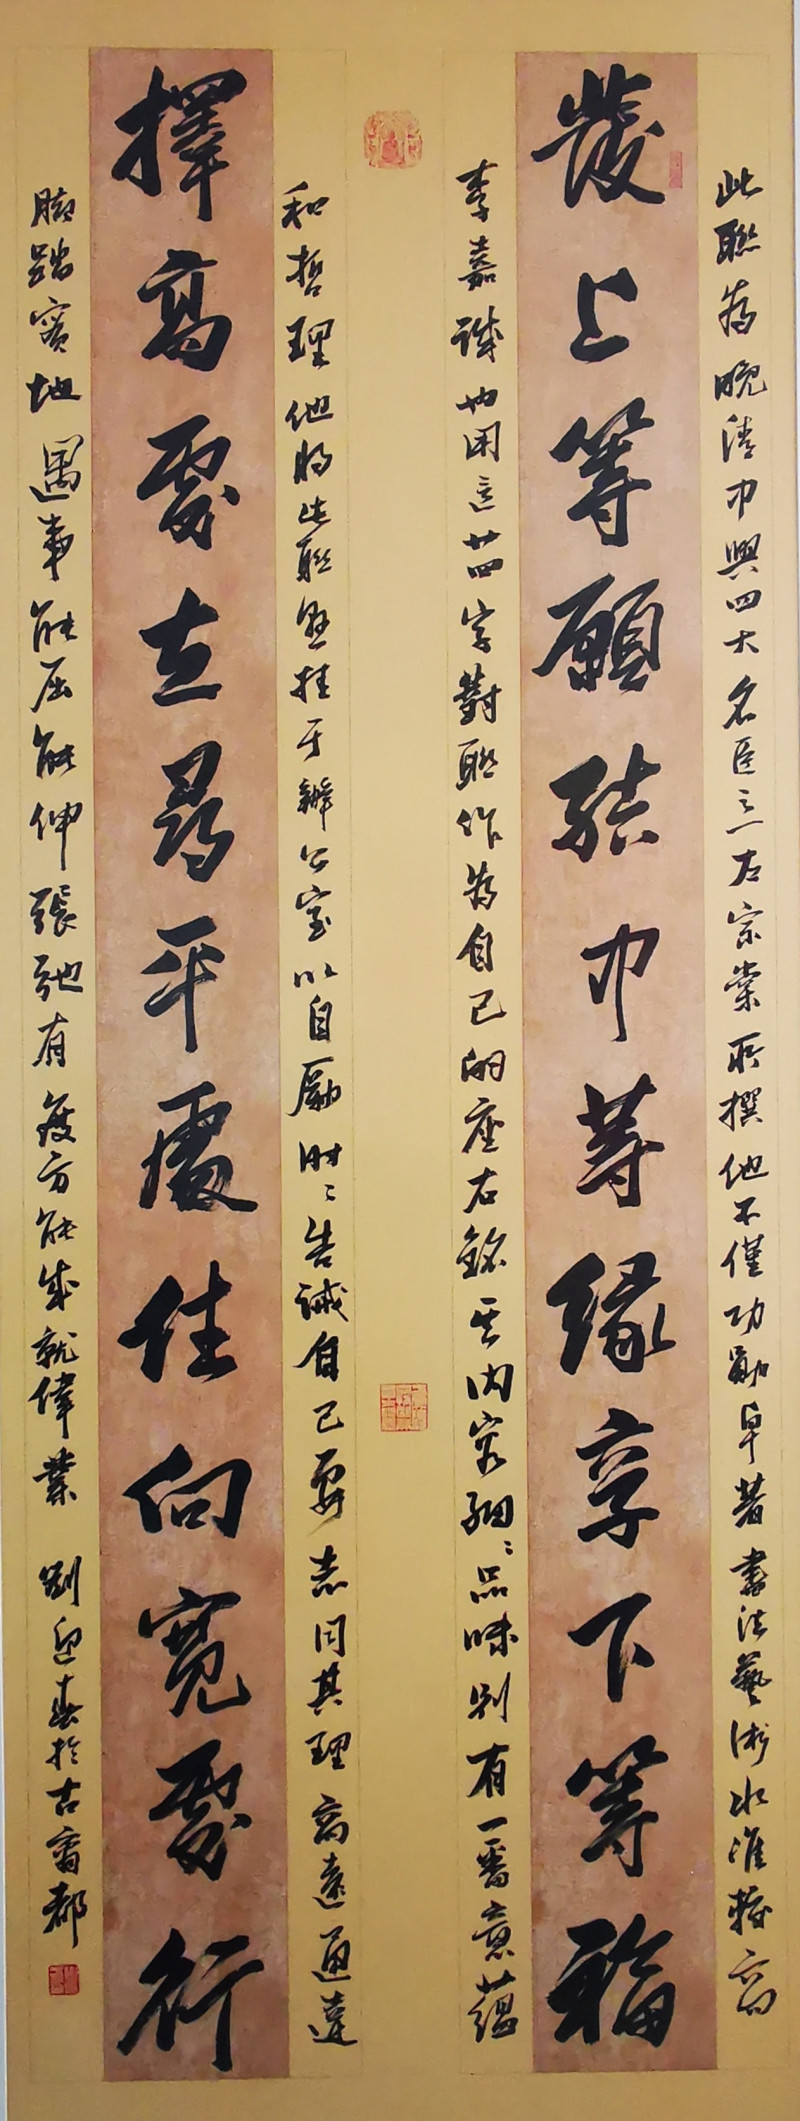 此聯為晚清中興四大名臣之一左宗棠所撰他不僅功勛卓著書法藝術水准較高
發上等願結中等緣享下等福
李嘉誠也用這廿四字對聯作為自己的座右銘其內容細細品味別有一番意蘊
和哲理他將此聯懸挂于辦公室以自勵時時告誡自己要志同其理高遠通達
擇高處立尋平處住向寬處行
脚踏實地遇事能屈能伸張弛有度方能成就偉業 劉迎春於古都